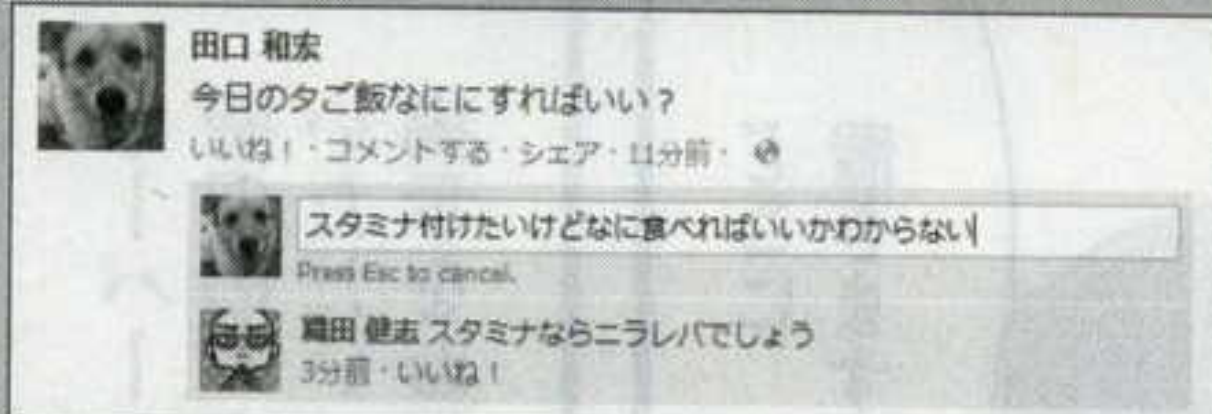 田口 和宏
今日の夕ご飯なににすればいい？
いいね！・コメントする・シェア・11分前・
スタミナ付けたいけどなに食べればいいかわからない
Press Esc to cancel.
織田 健志 スタミナならニラレバでしょう
3分前・いいね！